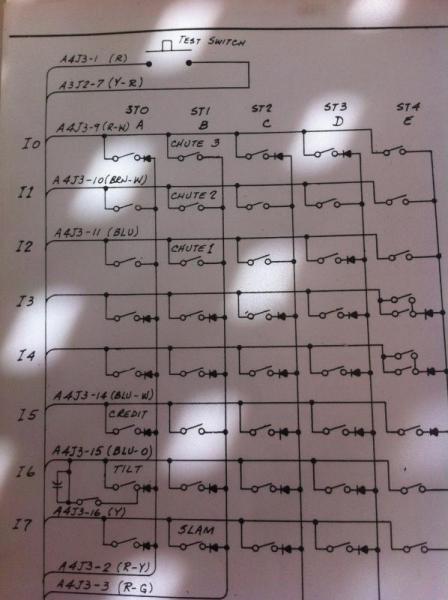 TEST SWITCH
A4J3-1 (R)
A3J2-7 (Y-R)
ST0 ST1 ST2 ST3 ST4
A B C D E
I0 A4J3-9(R-W) CHUTE 3
I1 A4J3-10(BRN-W) CHUTE 2
I2 A4J3-11 (BLU) CHUTE 1
I3
I4
I5 A4J3-14(BLU-W)
CREDIT
I6 A4J3-15(BLU-O)
TILT
A4J3-16(Y)
I7 SLAM
A4J3-2 (R-Y)
A4J3-3 (R-G)